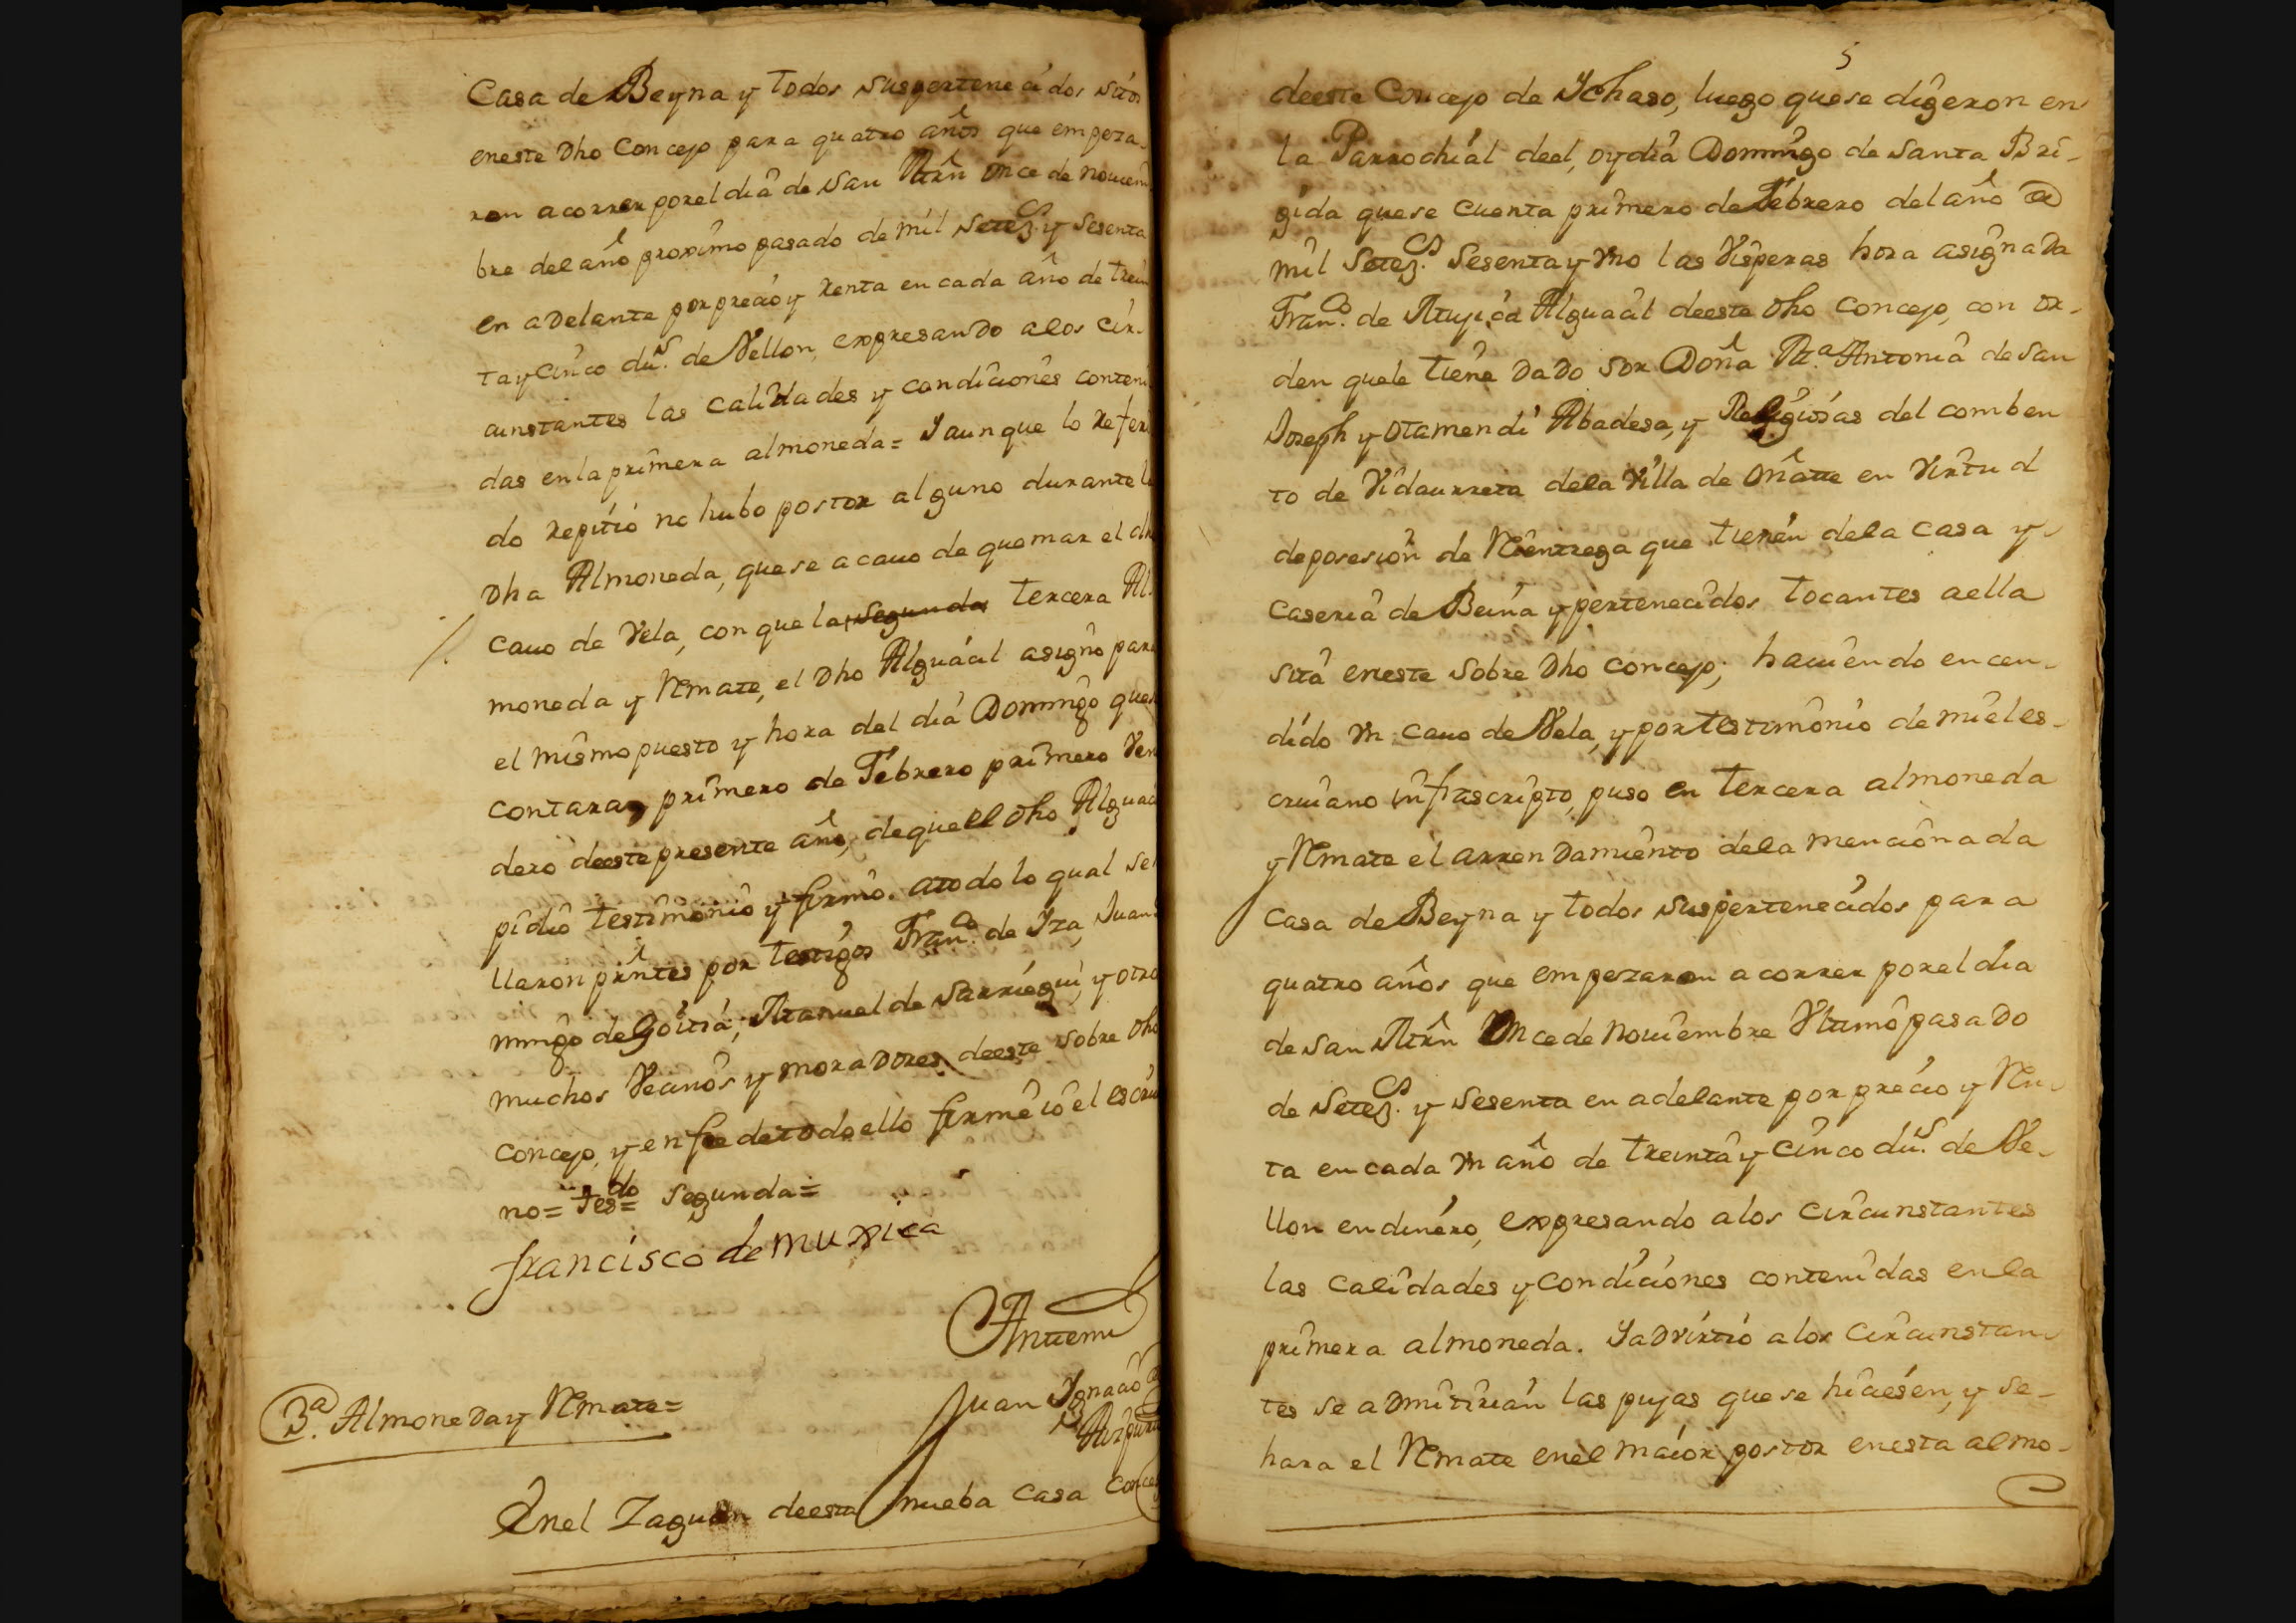 Casa de Beyna y todos suspertenecidos sitos
eneste Dho Concejo para quatro años que empeza-
ron acorrer porel dia de San Mrñ once de noviem
bre del año proximo pasado de mil Setezs. y Sesenta
en adelante por precio y Renta en cada año de trein
tay Cinco dus. de Vellon, expresando alos cir-
cunstantes las calidades y condiciones conteni
das enlaprimera almoneda= Yaunque lo Referi
do Repitió no hubo postor alguno durante la
Dha Almoneda, quese acavo de quemar el dho
Cavo de Vela, con que la segunda tercera Al-
moneda y Rmate, el Dho Alguacil asigno para
el mismo puesto y hora del dia Domingo quese
contara primero de Febrero primero Veni
dero deeste presente año, dequeel Dho Alguacil
pidio testimonio y firmò. atodo lo qual se a
llaron prntes por testigos Franco. de Yza, Juan Do
mingo de Goitia, Manuel de Sarriegui, y otros
muchos Vecinos y moradores deeste sobre Dho
Concejo, y enfee detodoello firmè ió el escriv
no= tesdo= segunda=
francisco de muxica
Antemi
Juan Ygnacio de
3ª. Almoneday Rmate=
Enel Zaguan deesta nueba casa Concej
5
deeste Concejo de Ychaso, luego quese digeron en
la Parrochial deel, oydia Domingo de Santa Bri-
gida quese cuenta primero de Febrero del año de
mil Setezs. Sesentay Vno las Visperas hora asignada
Franco. de Alguacil deeste Dho Concejo, con or-
den quele tiene dado sor Doña Ma. Antonia de San
Joseph y Otamendi Abadesa, y Religiosas del comben
to de Vidaurreta dela Villa de Oñatte en Virtud
deposesion de Reentrega que tienen dela casa y
caseria de Beina ypertenecidos tocantes aella
sita eneste sobre Dho concejo; haviendo encen-
dido Vn cavo de Vela, y portestimonio de mieles-
crivano infrascripto, puso en tercera almoneda
y Rmate el arrendamiento dela mencionada
casa de Beyna y todos suspertenecidos para
quatro años que empezaron acorrer porel dia
de San Mrñ Once de Noviembre Vltimo pasado
de Setezs. y Sesenta en adelante por precio y Ren-
ta en cada Vn año de treinta y cinco dus. de Ve-
llon endinero, expresando alos circunstantes
las calidades y condiciones contenidas enla
primera almoneda. Yadvirtió alos circunstan-
tes se admitirian las pujas quese hiciesen, y se-
hara el Rmate enel maior postor enesta almo-